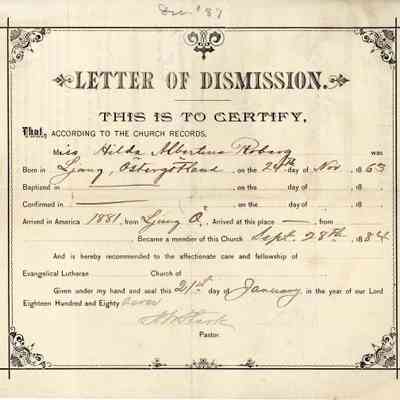 '87
LETTER OF DISMISSION.
THIS IS TO CERTIFY,
That, ACCORDING TO THE CHURCH RECORDS,
Miss Hilda Albertina Roberg was
Born in Ljung, Östergötland, on the 24th day of Nov. 1863
Baptized in ——— , on the day of , 18
Confirmed in ——— , on the day of , 18
Arrived in America 1881, from Ljung Ö. Arrived at this place — , from
Became a member of this Church Sept. 28th 1884
And is hereby recommended to the affectionate care and fellowship of
Evangelical Lutheran Church of
Given under my hand and seal this 21st day of January in the year of our Lord
Eighteen Hundred and Eighty seven
Pastor.